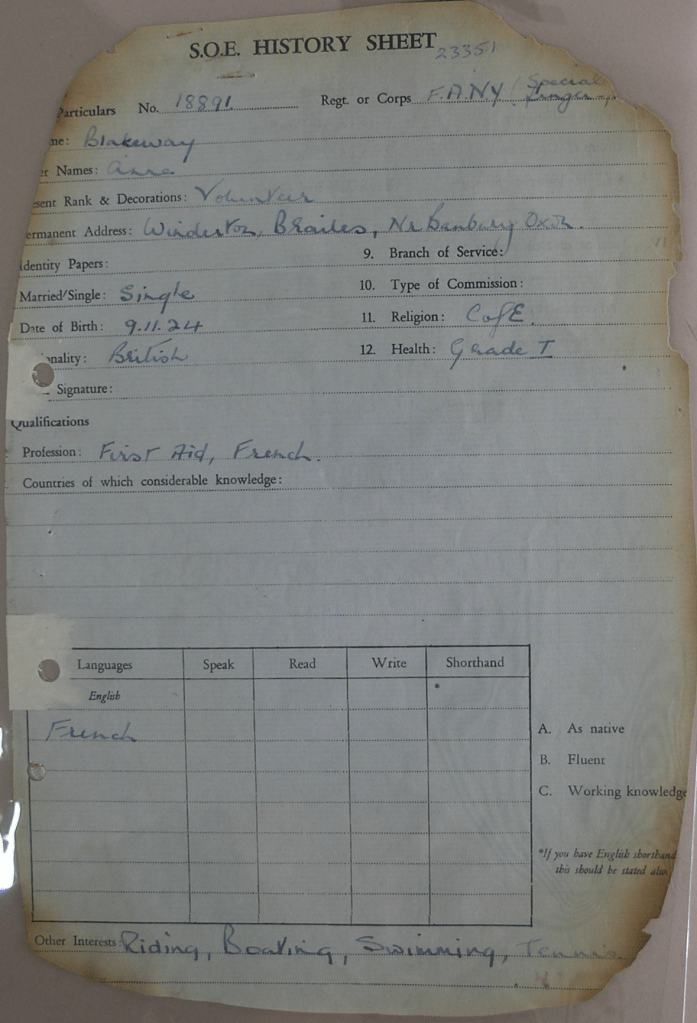 S.O.E. HISTORY SHEET 23351
Particulars No. 18891 Regt. or Corps F.A.N.Y (Special
me: Blakeway
r Names: Anne
sent Rank & Decorations: Volunteer
ermanent Address: Winderton, Brailes, Nr Banbury Oxon.
dentity Papers: 9. Branch of Service:
Married/Single: Single 10. Type of Commission:
Date of Birth: 9.11.24 11. Religion: C of E.
onality: British 12. Health: Grade I
Signature:
Qualifications
Profession: First Aid, French.
Countries of which considerable knowledge:
Languages Speak Read Write Shorthand
English *
French
A. As native
B. Fluent
C. Working knowledge
*If you have English shorthand
this should be stated also
Other Interests: Riding, Boating, Swimming, Tennis.